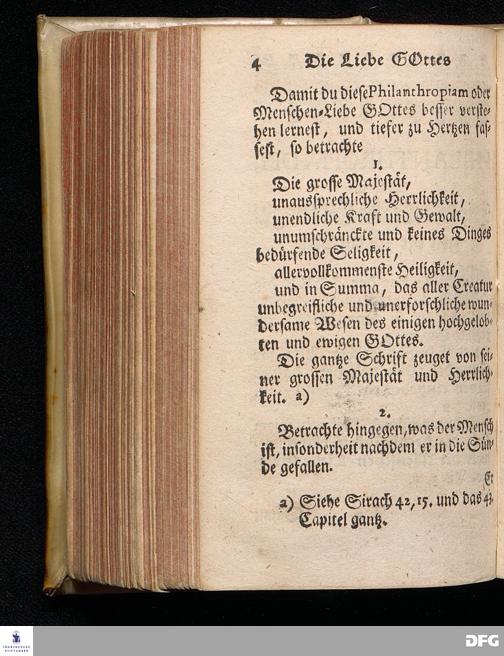 4 Die Liebe GOttes
Damit du diese Philanthropiam oder
Menschen-Liebe GOttes besser verste-
hen lernest, und tiefer zu Hertzen fas-
sest, so betrachte
1.
Die grosse Majestät,
unaussprechliche Herrlichkeit,
unendliche Kraft und Gewalt,
unumschränckte und keines Dinges
bedürfende Seligkeit,
allervollkommenste Heiligkeit,
und in Summa, das aller Creatur
unbegreifliche und unerforschliche wun-
dersame Wesen des einigen hochgelob-
ten und ewigen GOttes.
Die gantze Schrift zeuget von sei-
ner grossen Majestät und Herrlich-
keit. a)
2.
Betrachte hingegen, was der Mensch
ist, insonderheit nachdem er in die Sün-
de gefallen.
Er
a) Siehe Sirach 42, 15. und das 43.
Capitel gantz.
FRANCKESCHE
STIFTUNGEN
DFG